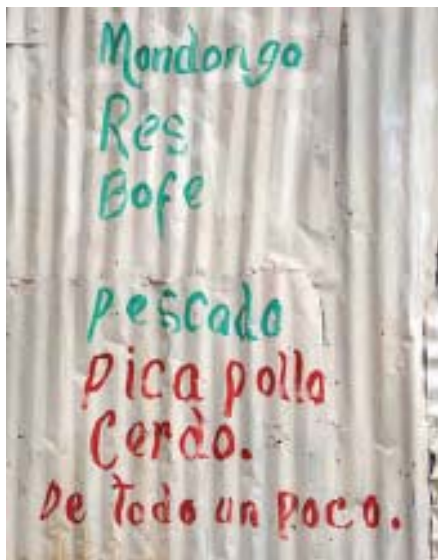 Mondongo
Res
Bofe
pescado
pica pollo
Cerdo.
De Todo un poco.